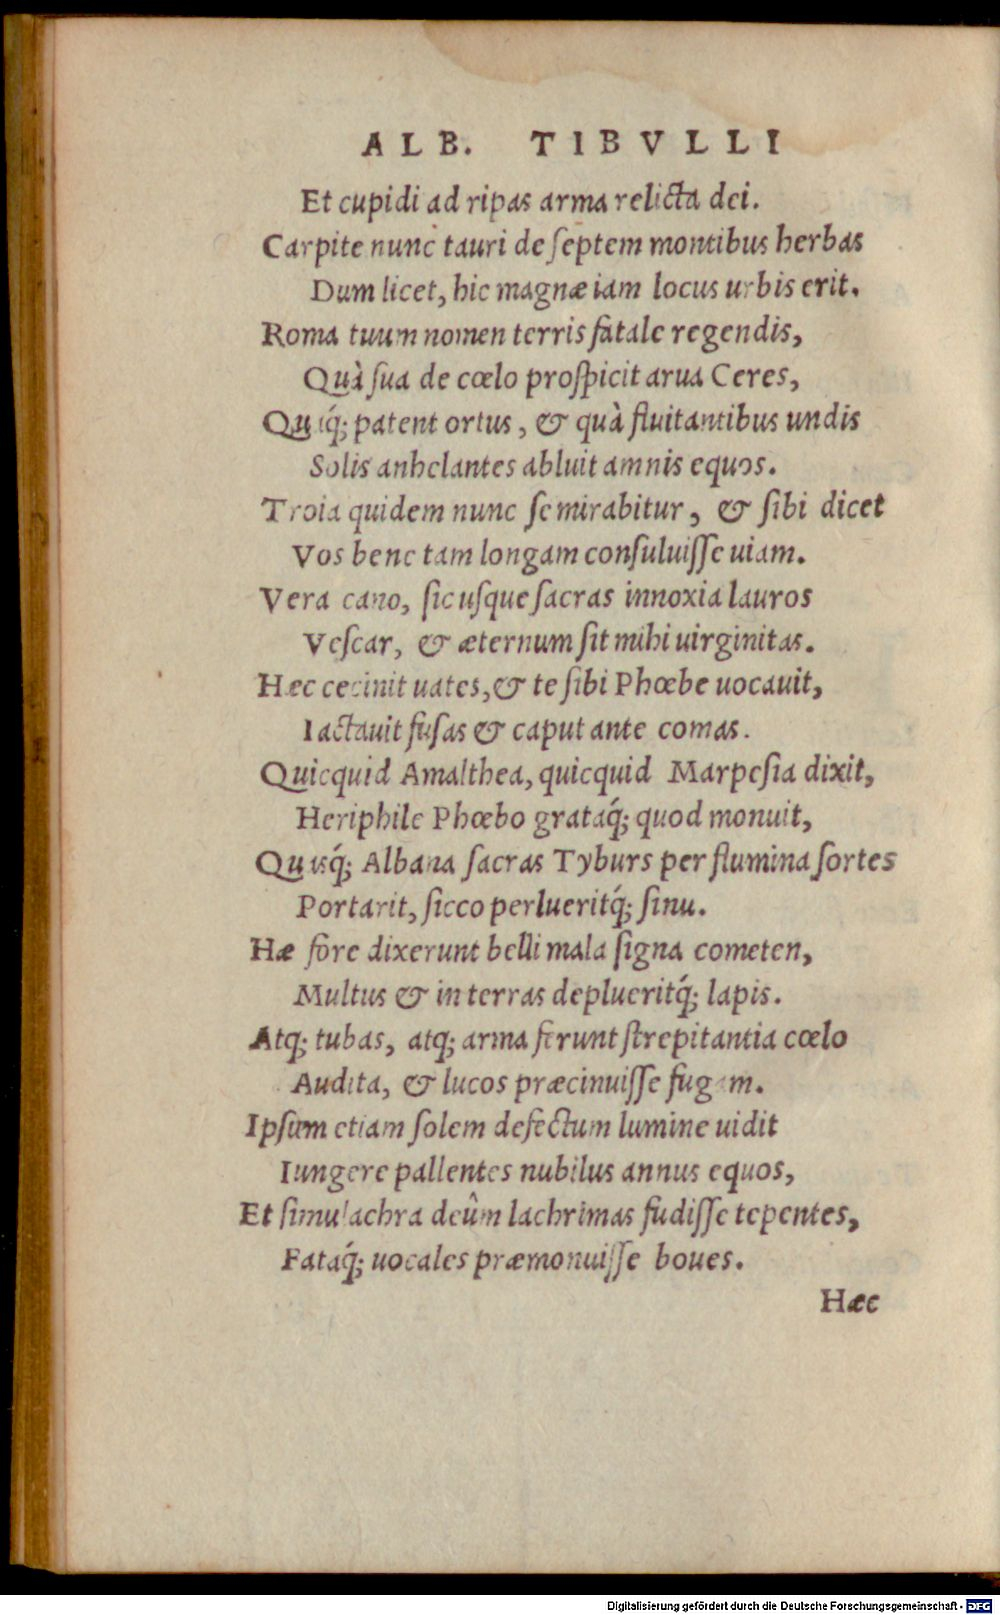 ALB. TIBVLLI
Et cupidi ad ripas arma relicta dei.
Carpite nunc tauri de ſeptem montibus herbas
Dum licet, hic magnæ iam locus urbis erit.
Roma tuum nomen terris fatale regendis,
Quà ſua de cœlo proſpicit arua Ceres,
Quiq́; patent ortus, & quà fluitantibus undis
Solis anhelantes abluit amnis equos.
Troia quidem nunc ſe mirabitur, & ſibi dicet
Vos bene tam longam conſuluiſſe uiam.
Vera cano, ſic uſque ſacras innoxia lauros
Veſcar, & æternum ſit mihi uirginitas.
Hæc cecinit uates, & te ſibi Phœbe uocauit,
Iactauit fuſas & caput ante comas.
Quicquid Amalthea, quicquid Marpeſia dixit,
Heriphile Phœbo grataq́; quod monuit,
Quisq́; Albana ſacras Tyburs per flumina ſortes
Portarit, ſicco perlueritq́; ſinu.
Hæ fore dixerunt belli mala ſigna cometen,
Multus & in terras deplueritq́; lapis.
Atq; tubas, atq; arma ferunt ſtrepitantia cœlo
Audita, & lucos præcinuiſſe fugam.
Ipſum etiam ſolem defectum lumine uidit
Iungere pallentes nubilus annus equos,
Et ſimulachra deûm lachrimas fudiſſe tepentes,
Fataq́; uocales præmonuiſſe boues.
Hæc
Digitalisierung gefördert durch die Deutsche Forschungsgemeinschaft - DFG